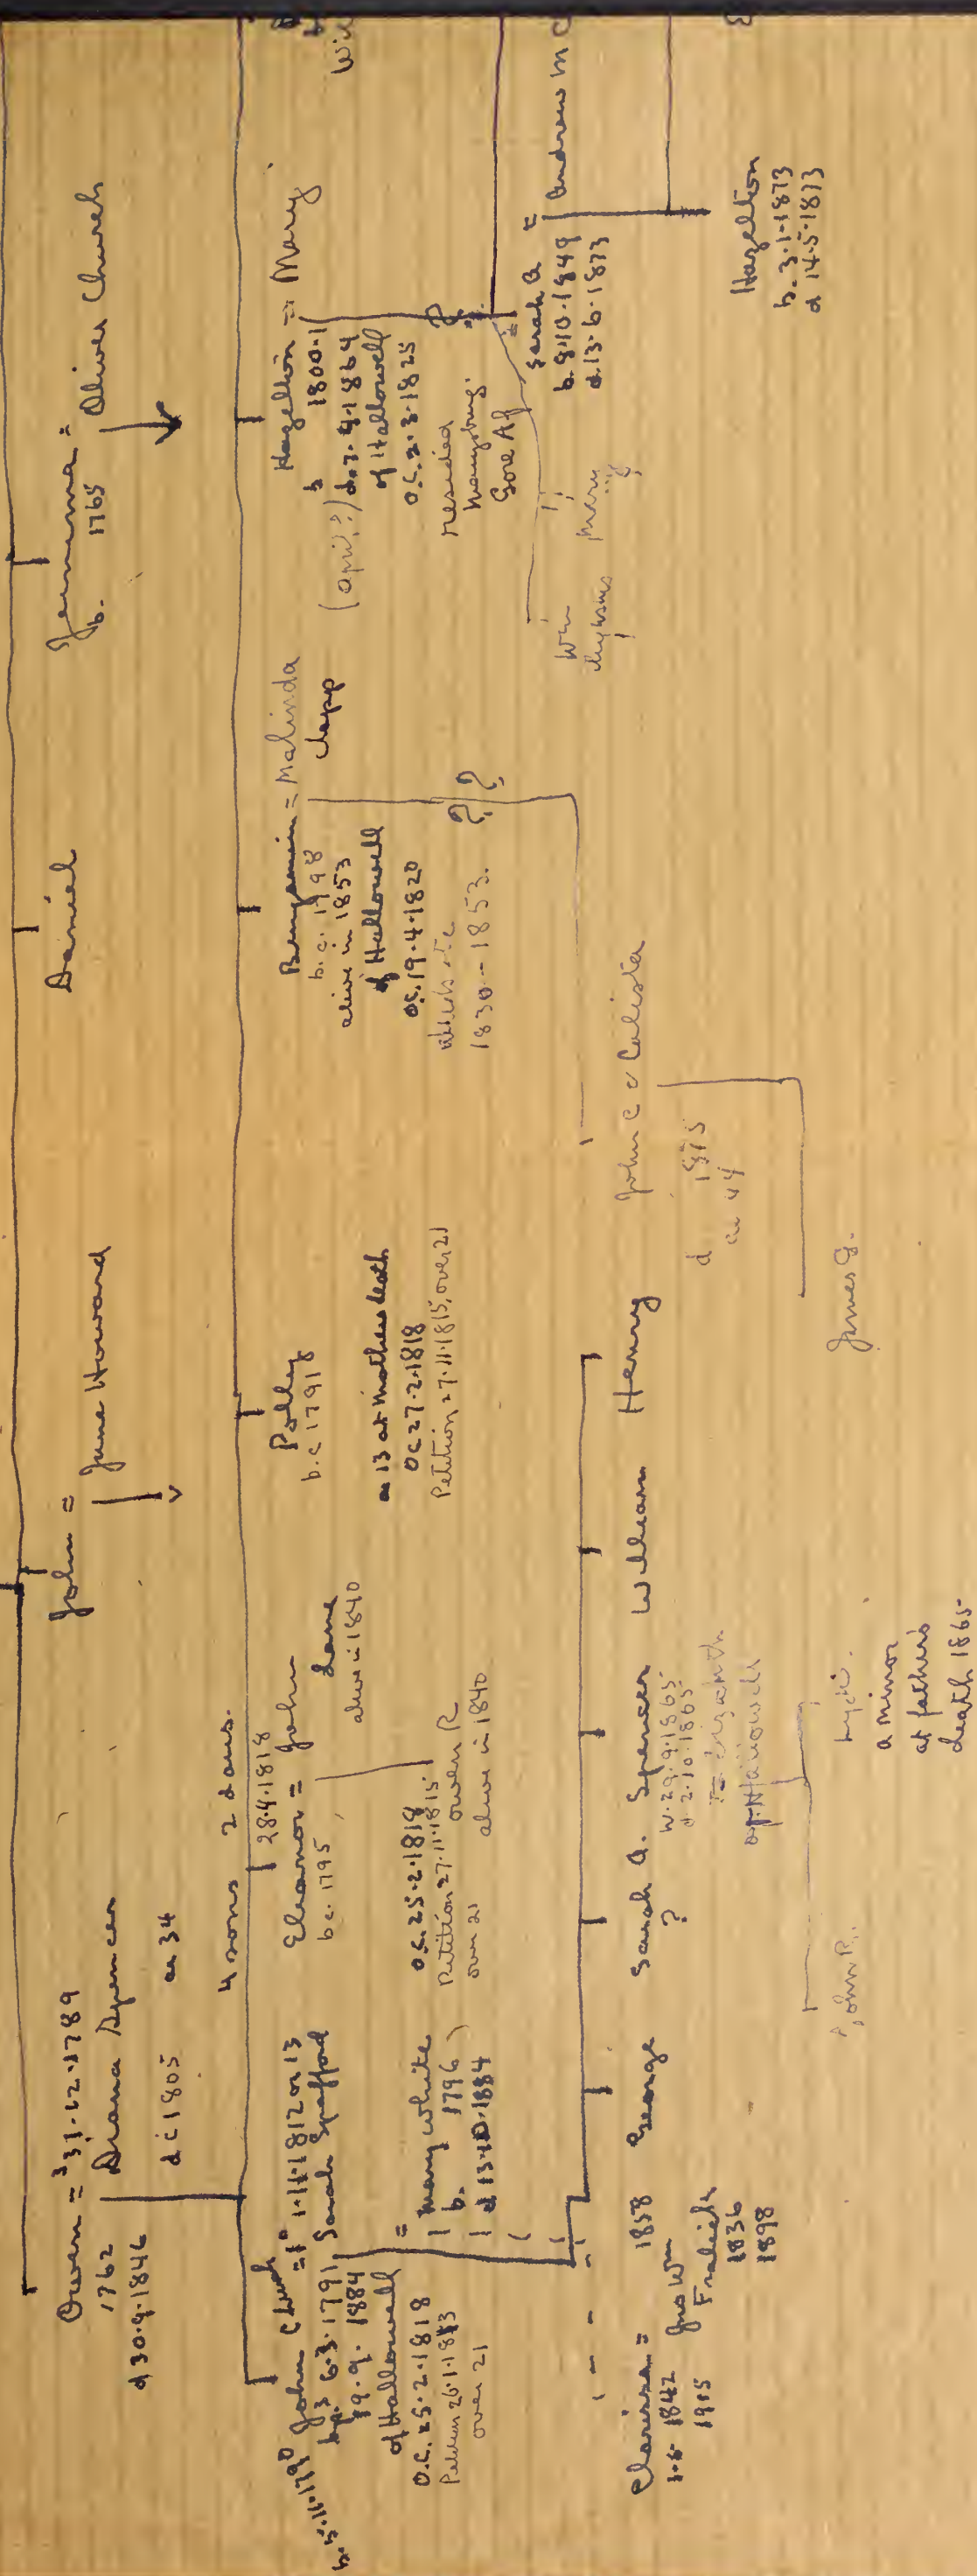 Owen = 31.12.1789
1762 Diana Spencer
d 30.9.1846
d c 1805 ae 34
John =
Jane Howard
Daniel
Jemima = Oliver Church
b. 1765
4 sons 2 daus.
b. 5.11.1790 John Church =1° 1.11.1812 or 13
bp. 3 6.3.1791 Sarah Spafford
19.9.1884
of Hallowell
O.C. 25.2.1818
over 21
=
Mary White
b. 1796
d 13.10.1884
28.4.1818
Eleanor = John
b c. 1795 Lane
alive in 1840
O.C. 25.2.1819
Petition 27.11.1815
over 21
Owen R
alive in 1840
Polley
b. c 1791
ae 13 at Mothers death
OC 27.2.1818
Petition 27.11.1815, over 21
Benjamin = Malinda
b. c. 1798 Clapp
alive in 1853
of Hallowell
O.C. 19.4.1820
1830 - 1853.
? ?
Hazelton = Mary
b 1800.1
(April?) d. 7.4.1864
of Hallowell
O.C. 2.3.1825
resided
Gore Af
?
Wm
Mary
Sarah A =
b. 8.10.1849
d. 13.6.1873
Andrew M C
Hazelton
b. 3.1.1873
d 14.5.1873
Clarissa = 1858
1842 Jno Wm
1915 Fralick
1836
1898
George
Sarah A.
?
Spencer
W. 29.9.1865
d 2.10.1865
= Elizabeth
of Hallowell
William
Henry
John C = Calista
d 1875
ae 44
John R.
a minor
at fathers
death 1865
James G.